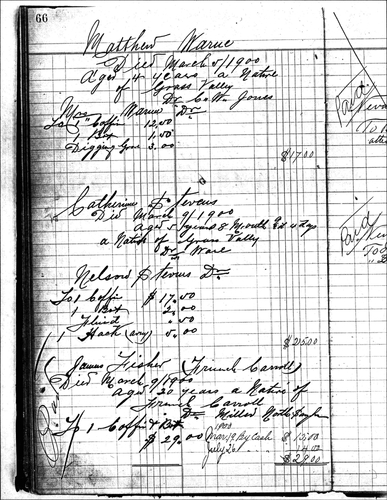 66
Matthew Warne
Died March 5/1900
Aged 14 years a Native
of Grass Valley
Dr C. W. Jones
Mrs Warne Dr
To 1 Coffin 12.50
1 Box 1.50
Digging Grave 3.00
$17.00
Catherine Stevens
Died March 9/1900
Aged 5 years 8 Month & 4 days
a Native of Grass Valley
Dr Ware
Nelson Stevens Dr
To 1 Coffin $17.50
1 Box 2.00
.50
1 Hack 5.00
$25.00
James Fisher (Frank Carroll)
Died March 9/1900
Aged 20 years a Native of
Frank Carroll
Dr
Paid
To 1 Coffin & Box
$29.00
1900
Mar 19 By Cash $15.00
July 26 " 14.00
$29.00
Paid
Paid